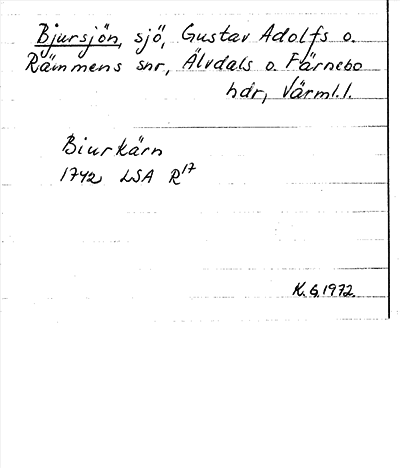 Bjursjön, sjö, Gustav Adolfs o.
Rämmens snr, Älvdals o. Färnebo
hdr, Värml. l.
Biurkärn
1742 LSA R17
K. G. 1972.